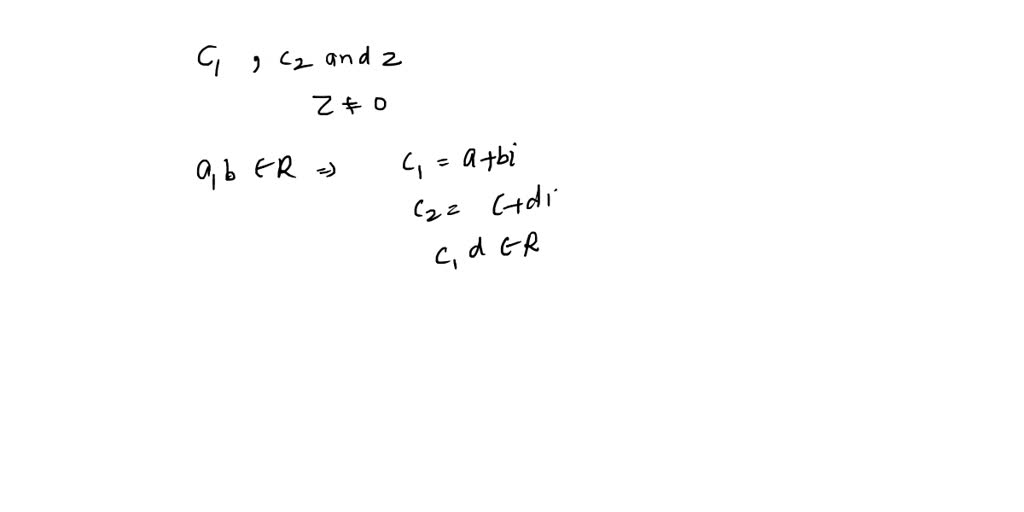 C₁ , c₂ and z
Z ≠ 0
a, b ∈ R ⇒ c₁ = a+bi
c₂ = c+di
c, d ∈ R